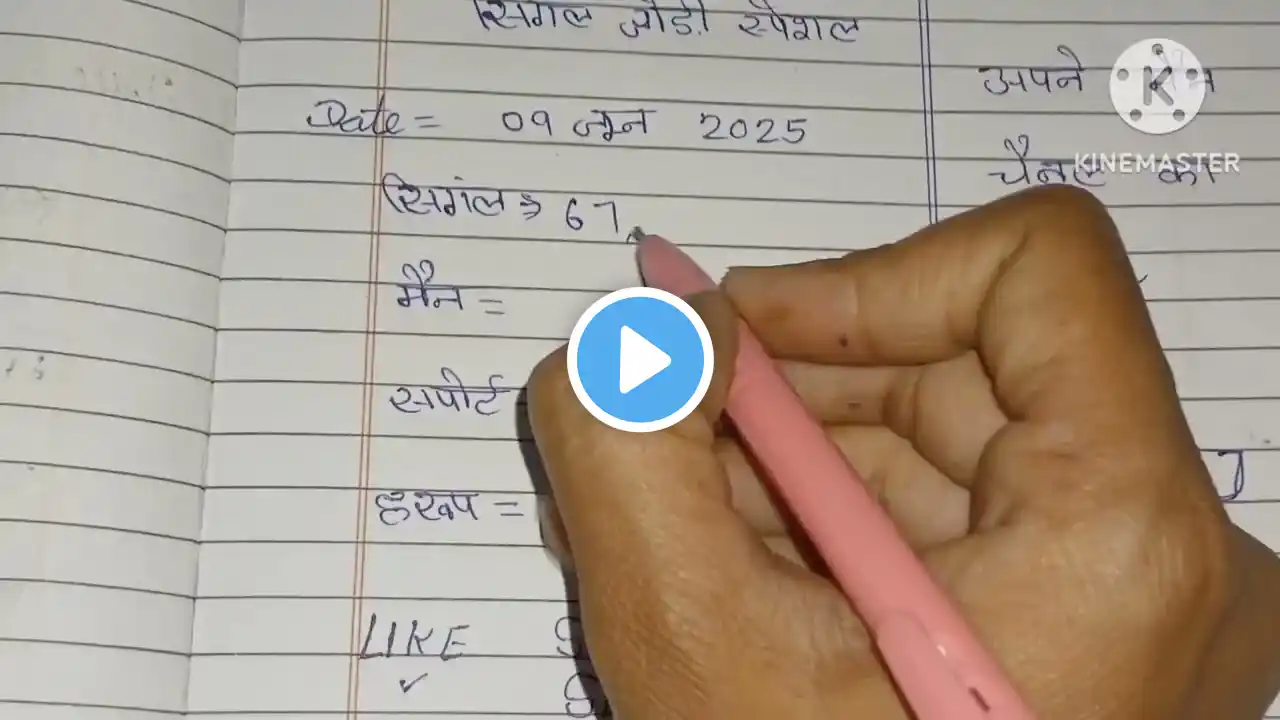 सिंगल जोडी स्पेशल
Date = 09 जून 2025
सिगंल ⇒ 67
मैन =
सपोर्ट
हरूप =
LIKE
✓
अपने
चैनल का
KINEMASTER